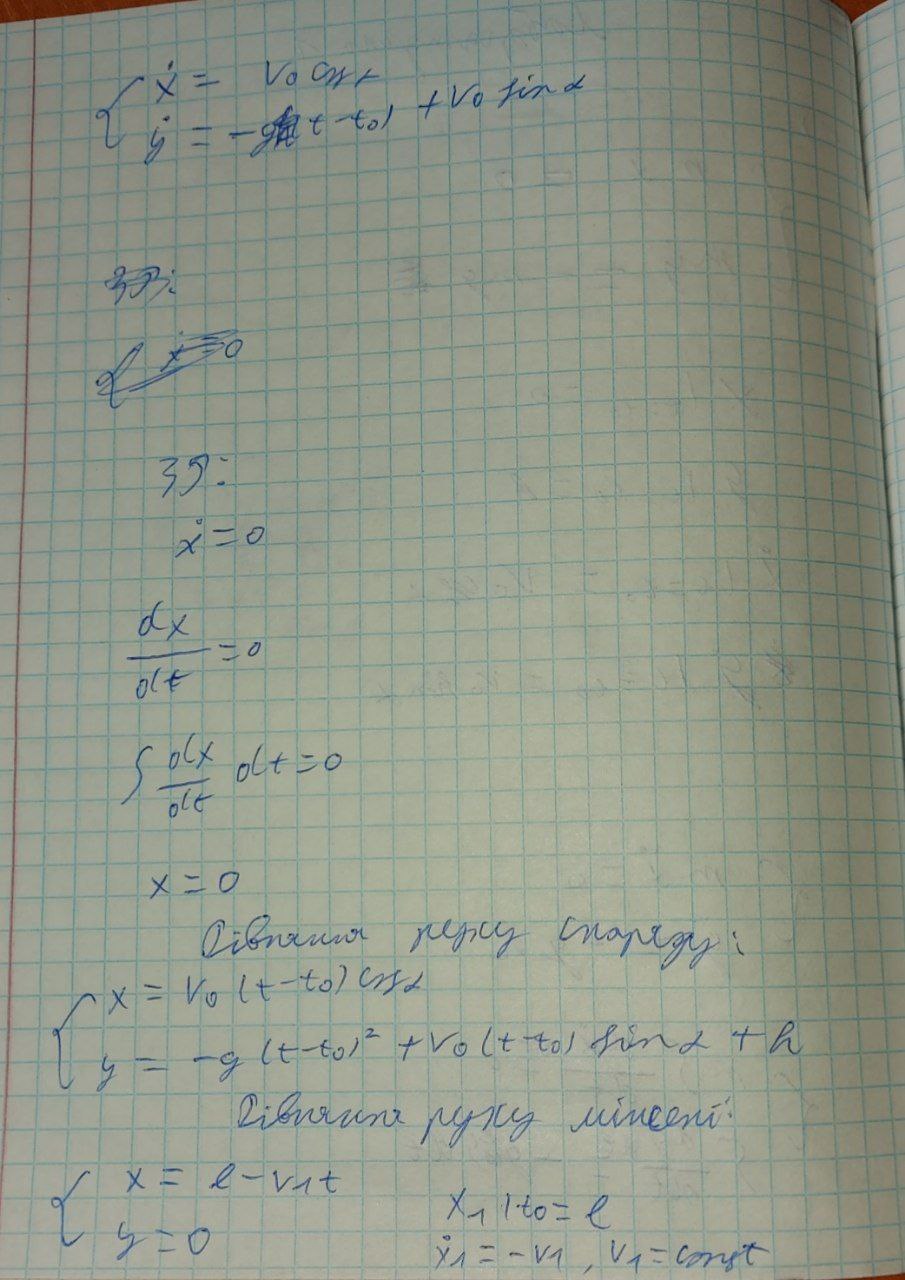 ẋ = v₀ cos α
ẏ = -g(t-t₀) + v₀ sin α
ЗЯ:
ẋ = 0
ЗЯ:
ẋ = 0
dx/dt = 0
∫ dx/dt dt = 0
x = 0
Рівняння руху снаряду:
x = v₀ (t-t₀) cos α
y = -g (t-t₀)² + v₀ (t-t₀) sin α + h
Рівняння руху мішені:
x = l - v₁t
y = 0
x₁|t₀ = l
ẋ₁ = -v₁, v₁ = const